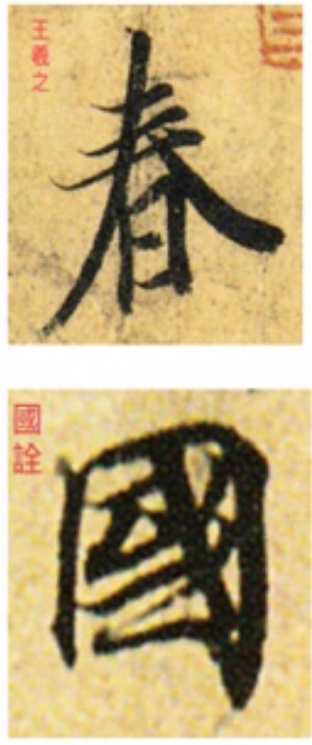 王羲之
春
國詮
國